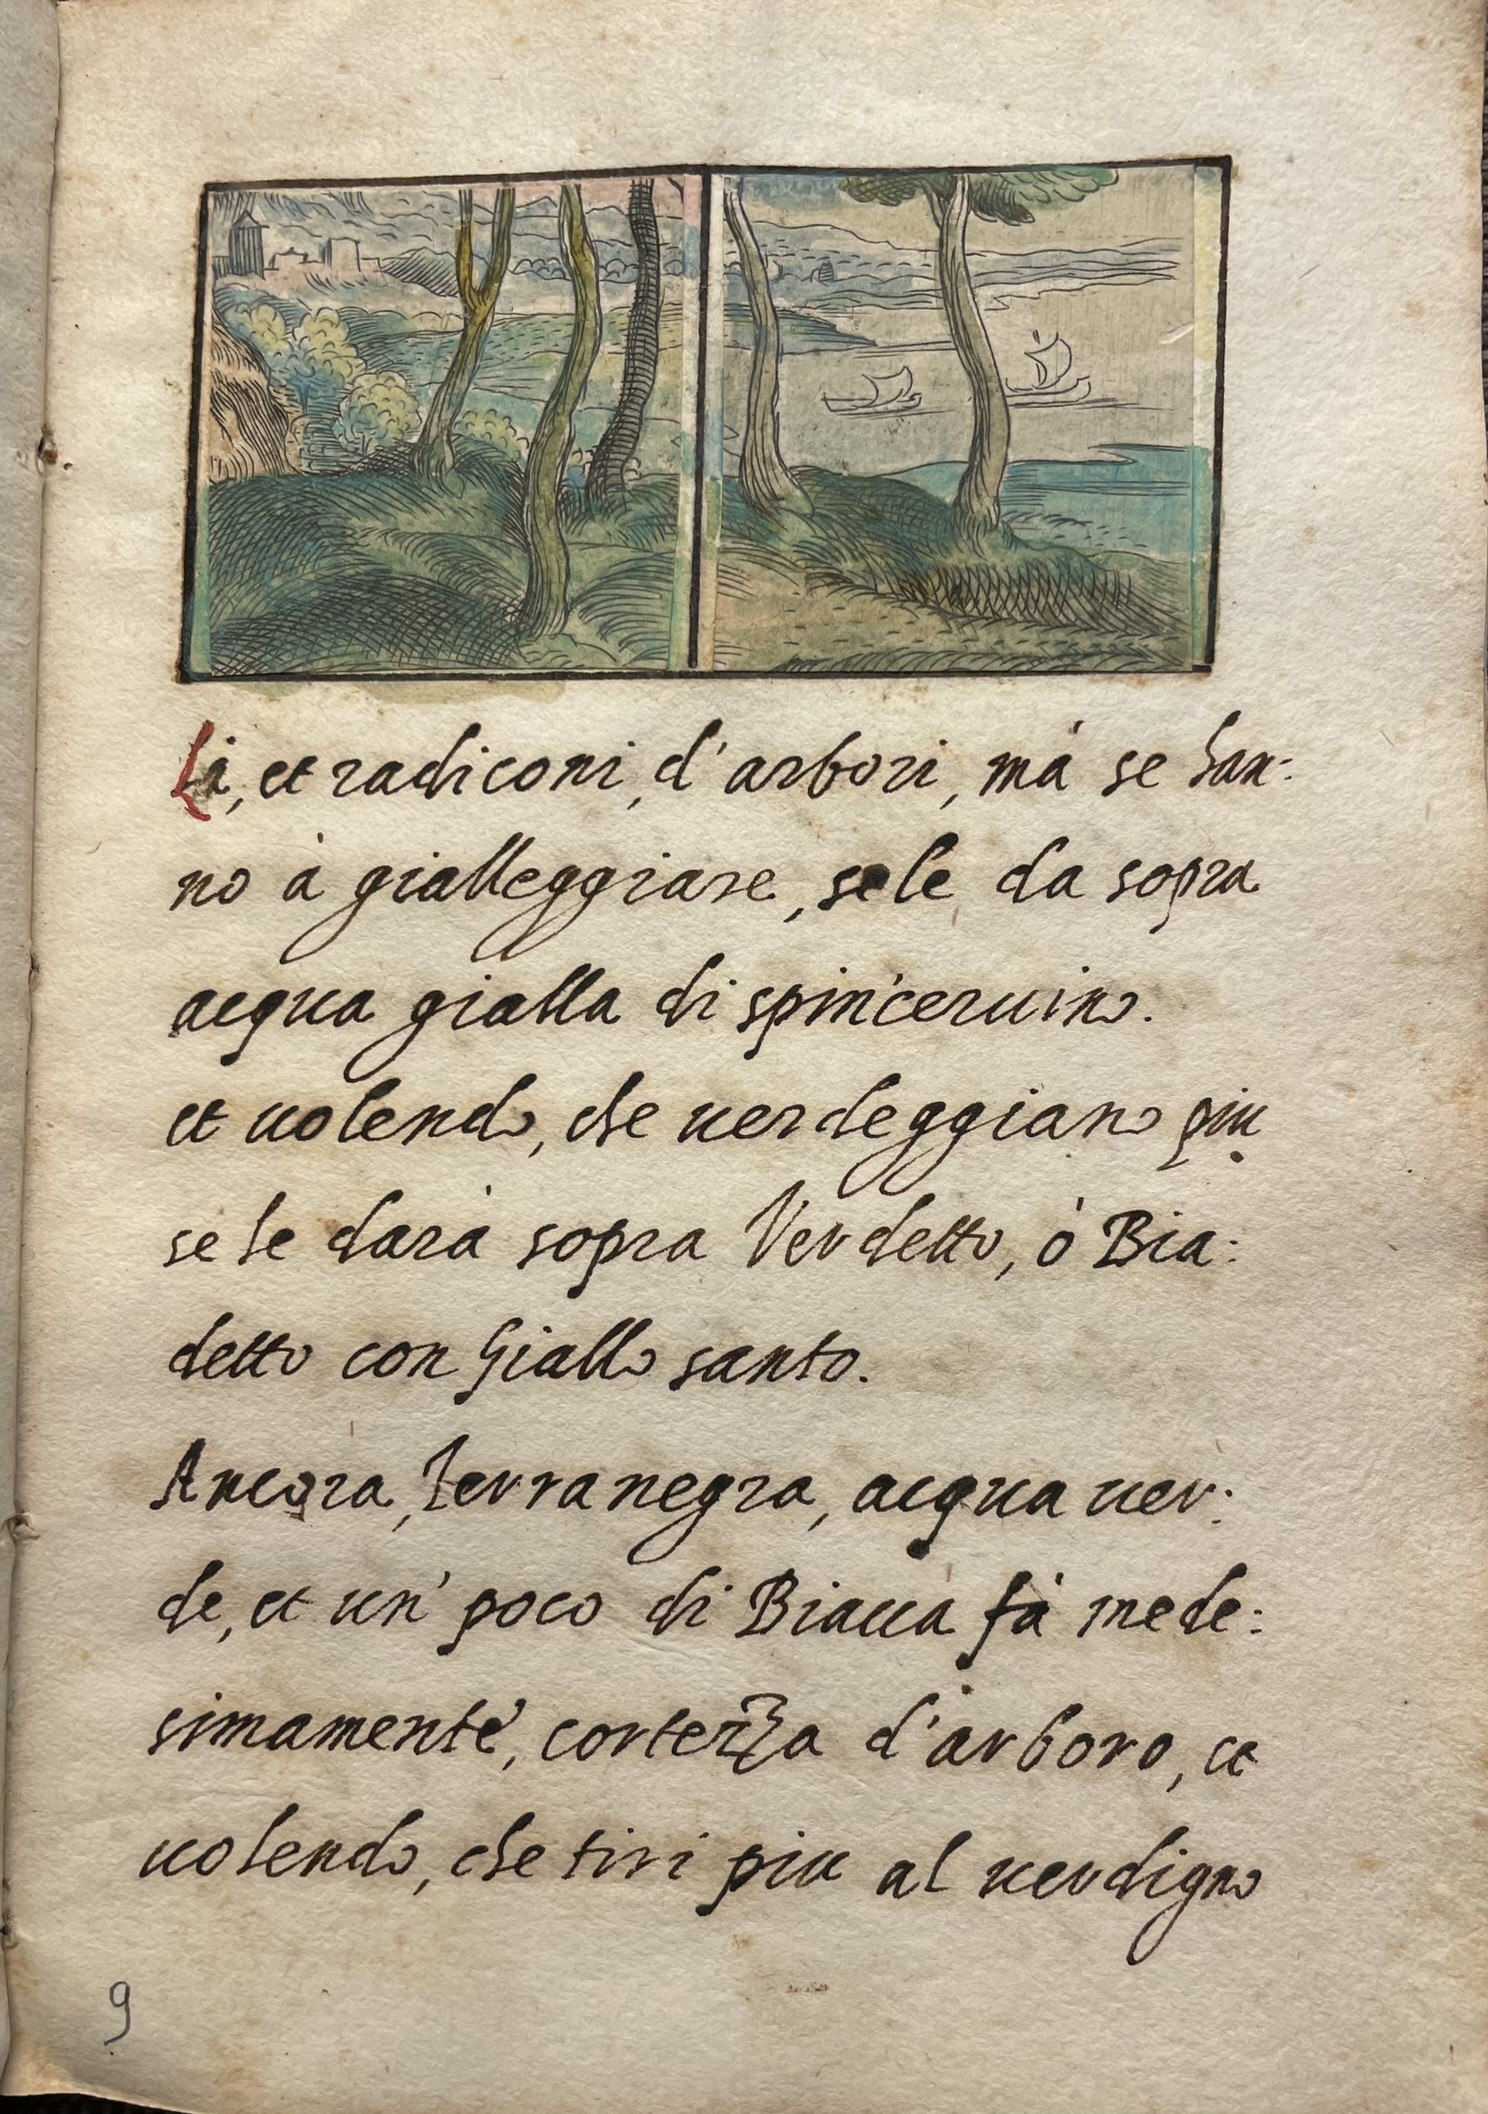 Li, et radiconi, d'arbori, mà se han:
no à gialleggiare, se le da sopra
acqua gialla di spin'ceruino.
et uolendo, che uerdeggiano piu
se le darà sopra Verdetto, ò Bia:
detto con Giallo santo.
Ancora, Terra negra, acqua uer:
de, et un' poco di Biacca fà mede:
simamente, cortezza d'arboro, et
uolendo, che tiri piu al uerdigno
9